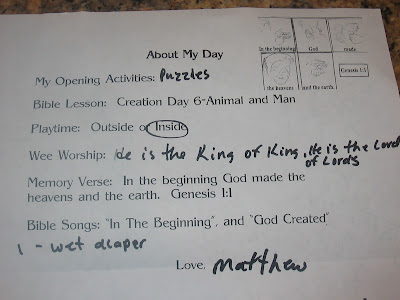 In the beginning God made
the heavens and the earth. Genesis 1:1
About My Day
My Opening Activities: Puzzles
Bible Lesson: Creation Day 6-Animal and Man
Playtime: Outside or Inside
Wee Worship: He is the King of King, He is the Lord
of Lords
Memory Verse: In the beginning God made the
heavens and the earth. Genesis 1:1
Bible Songs: "In The Beginning", and "God Created"
1 - wet diaper
Love, Matthew